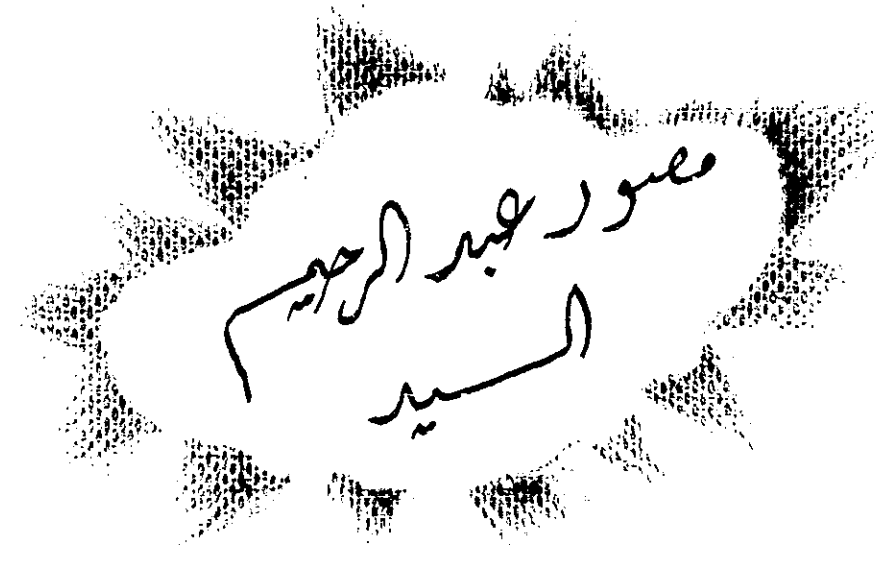 منصور عبد الرحيم
السيد